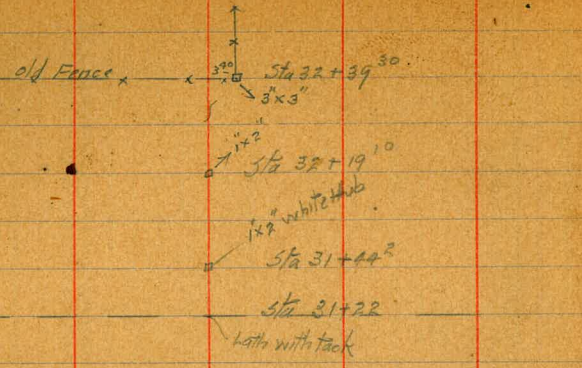 old Fence 3²⁰ Sta 32+39³⁰
3"x3"
1"x2"
Sta 32+19¹⁰
1"x2" white Hub
Sta 31+44²
Sta 31+22
Lath with tack